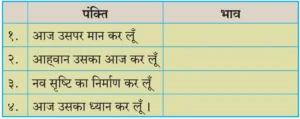 पंक्ति भाव
१. आज उसपर मान कर लूँ
२. आह्वान उसका आज कर लूँ
३. नव सृष्टि का निर्माण कर लूँ
४. आज उसका ध्यान कर लूँ ।